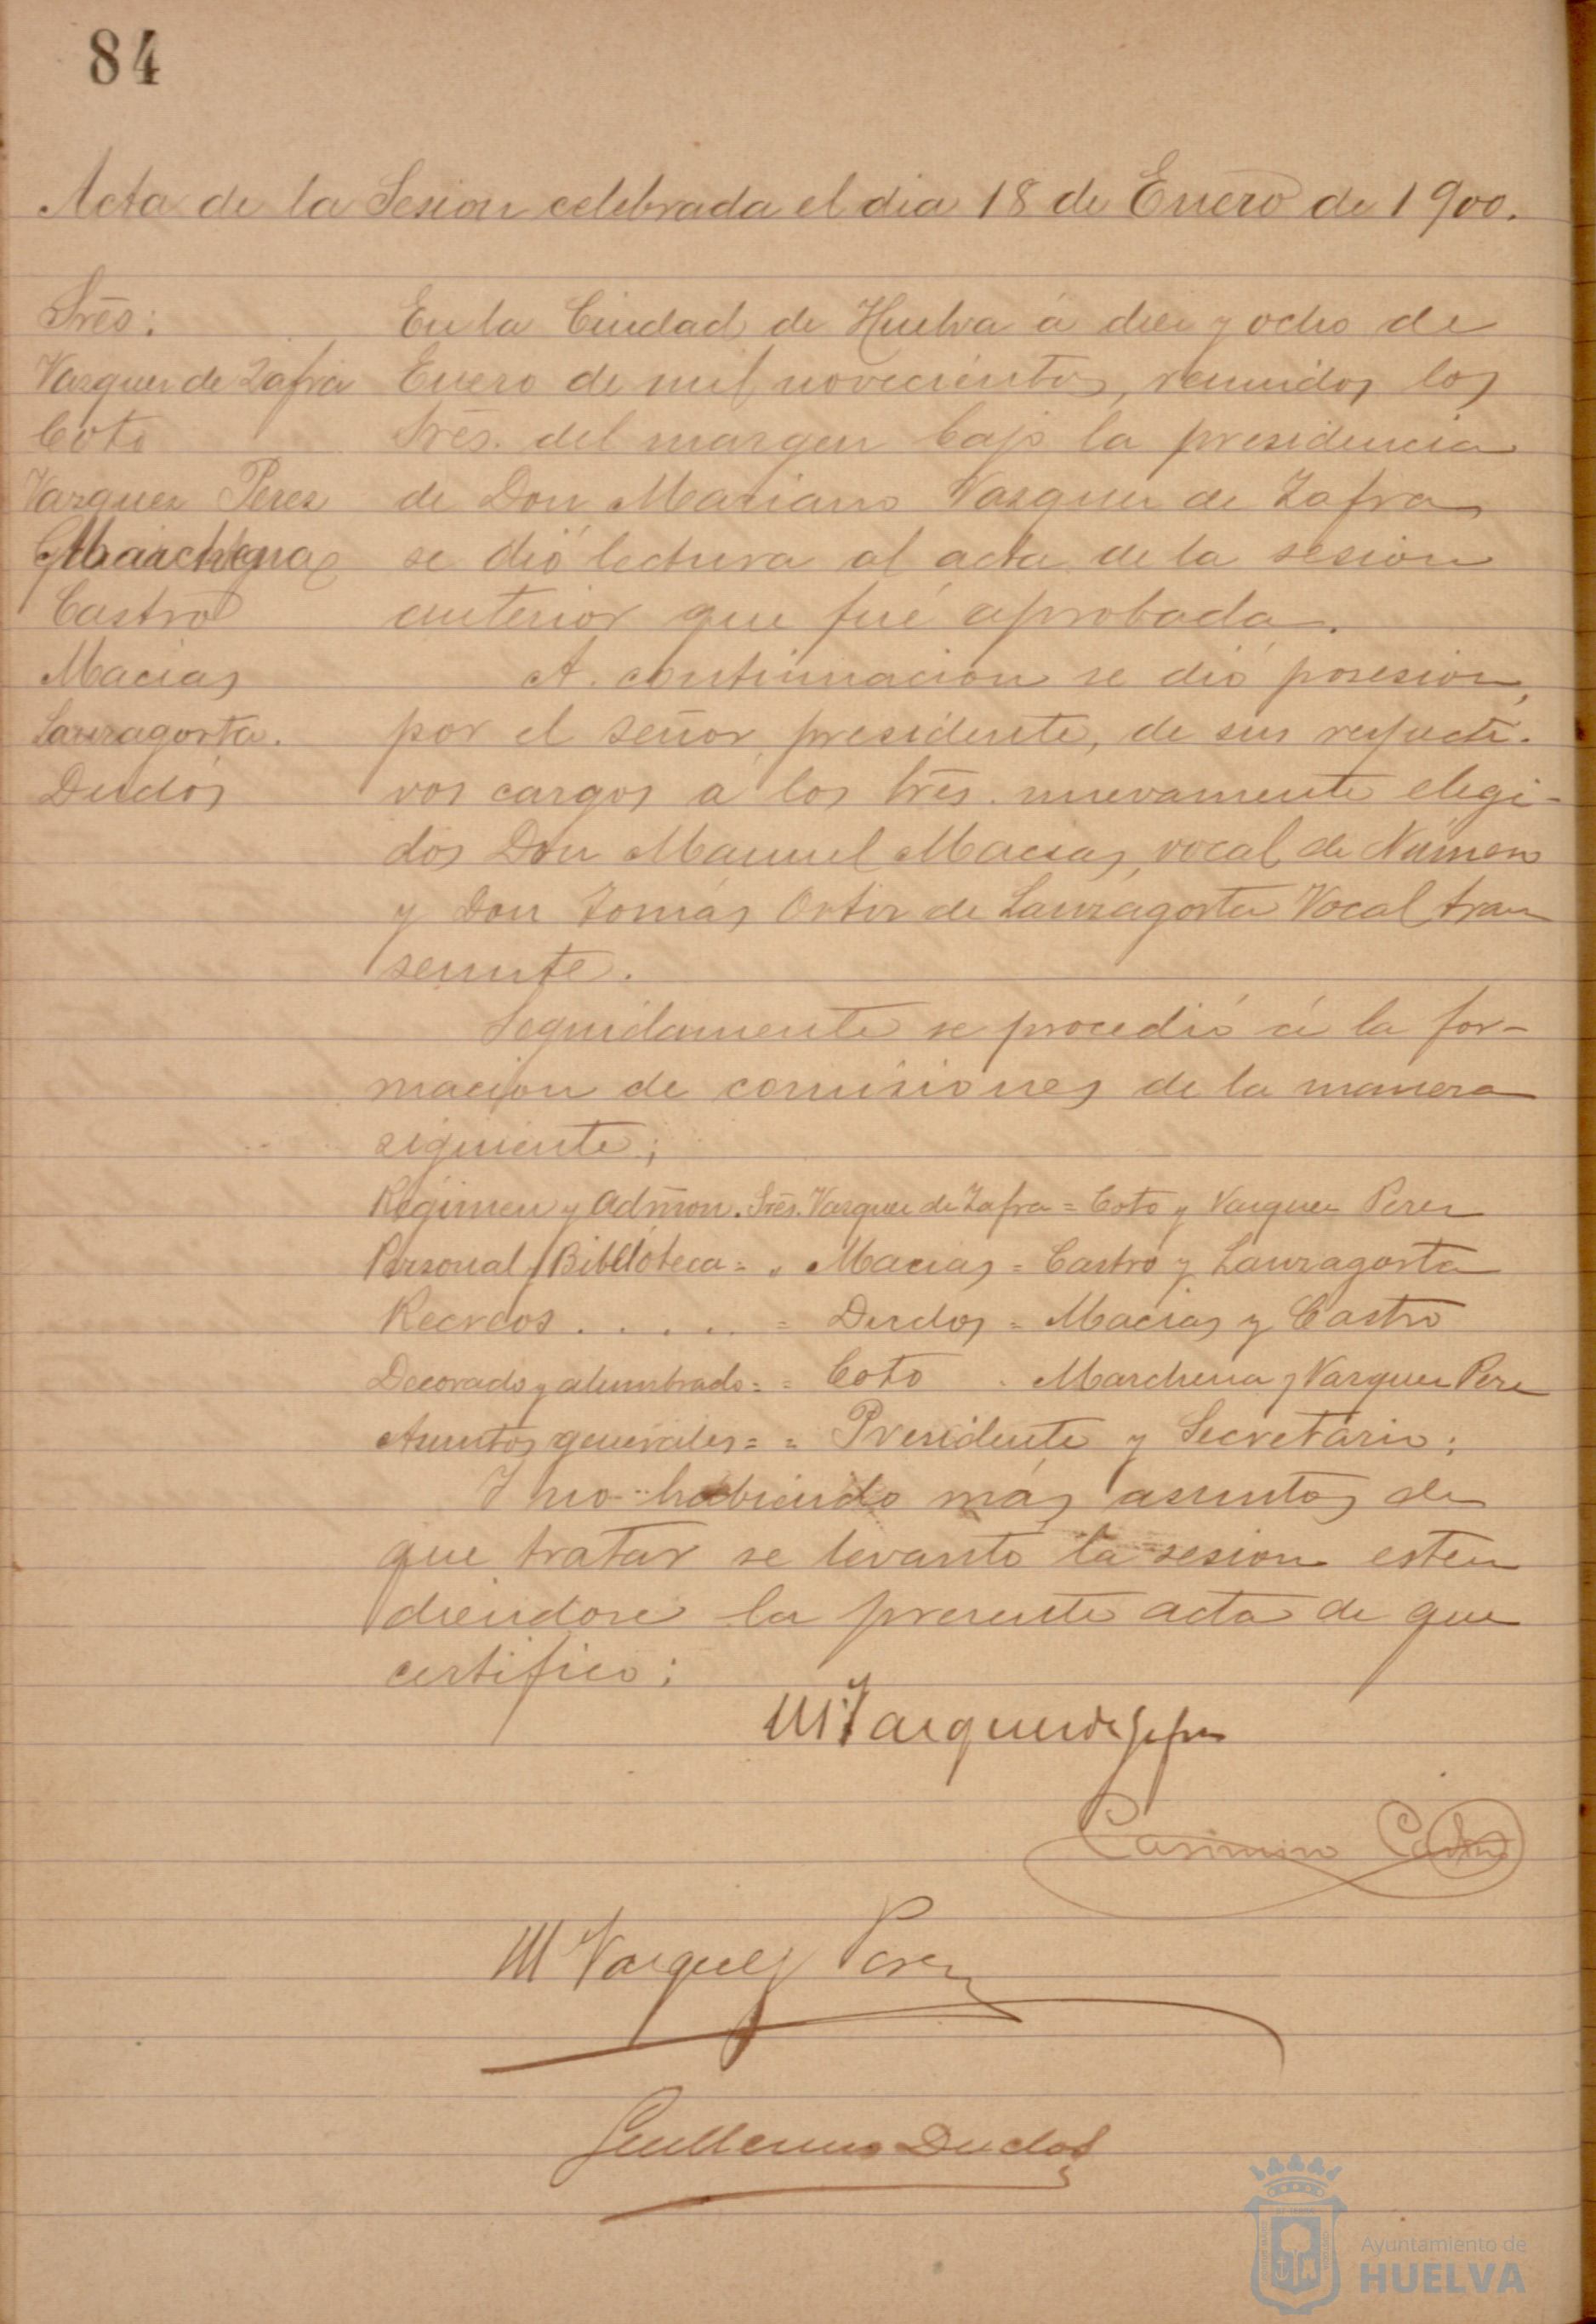 84
Acta de la Sesion celebrada el dia 18 de Enero de 1900.
Srēs:
Vazquez de Zafra
Coto
Vazquez Perez
Marchena
Castro
Macias
Lauzagorta.
Duclós
En la Ciudad de Huelva á diez y ocho de
Enero de mil novecientos, reunidos los
Srēs. del margen bajo la presidencia
de Don Mariano Vazquez de Zafra
se dió lectura al acta de la sesion
anterior que fué aprobada.
A. continuacion se dió posesion,
por el señor presidente, de sus respecti-
vos cargos a los Srēs. nuevamente elegi-
dos Don Manuel Macias, vocal de Número
y Don Tomás Ortiz de Lauzagorta Vocal tran
seunte.
Seguidamente se procedió á la for-
macion de comisiones de la manera
siguiente;
Régimen y Admōn. Srēs. Vazquez de Zafra = Coto y Vazquez Perez
Personal y Biblioteca = " Macias = Castro y Lauzagorta
Recreos . . . . . = Duclos = Macias y Castro
Decorado y alumbrado = = Coto . Marchena y Vazquez Pere
Asuntos generales = = Presidente y Secretario;
Y no habiendo más asuntos de
que tratar se levantó la sesion esten
diendose la presente acta de que
certifico:
M Vazquez de Zafra
Casimiro Castro
M Vazquez Perez
Guillermo Duclós
Ayuntamiento de
HUELVA